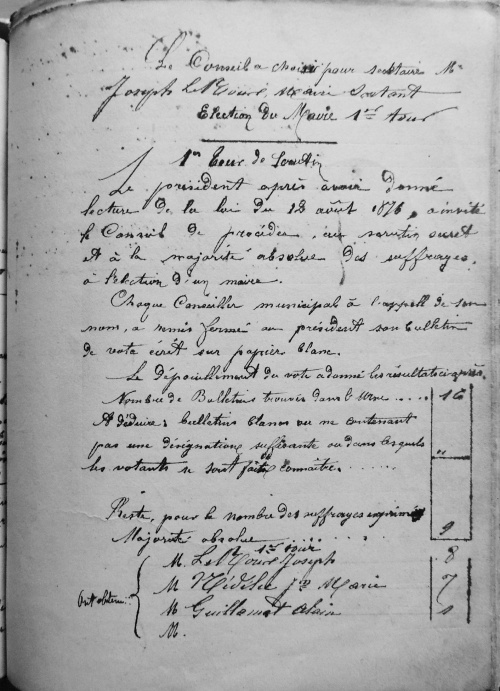 Le Conseil a choisi pour secrétaire Mr
Joseph Le Mour, Maire Sortant
Election du Maire 1er tour
1er tour de Scrutin
Le président après avoir donné
lecture de la loi du 12 août 1876, a invité
le Conseil de procéder, au scrutin secret
et à la majorité absolue des suffrages,
à l'élection d'un maire.
Chaque Conseiller municipal à l'appell de son
nom, a remis fermé au président son bulletin
de vote écrit sur papier blanc.
Le Dépouillement du vote a donné les résultats ci-après.
Nombre de Bulletins trouvés dans l'urne .... 16
A déduire: bulletins blancs ou ne contenant
pas une désignation suffisante ou dans lesquels
les votants se sont faits connaître ...... "
Reste, pour le nombre des suffrages exprimés
Majorité absolue ...... 9
1er tour
Ont obtenu: M. Joseph 8
M Marie 7
M Guillemot Alain 1
M.